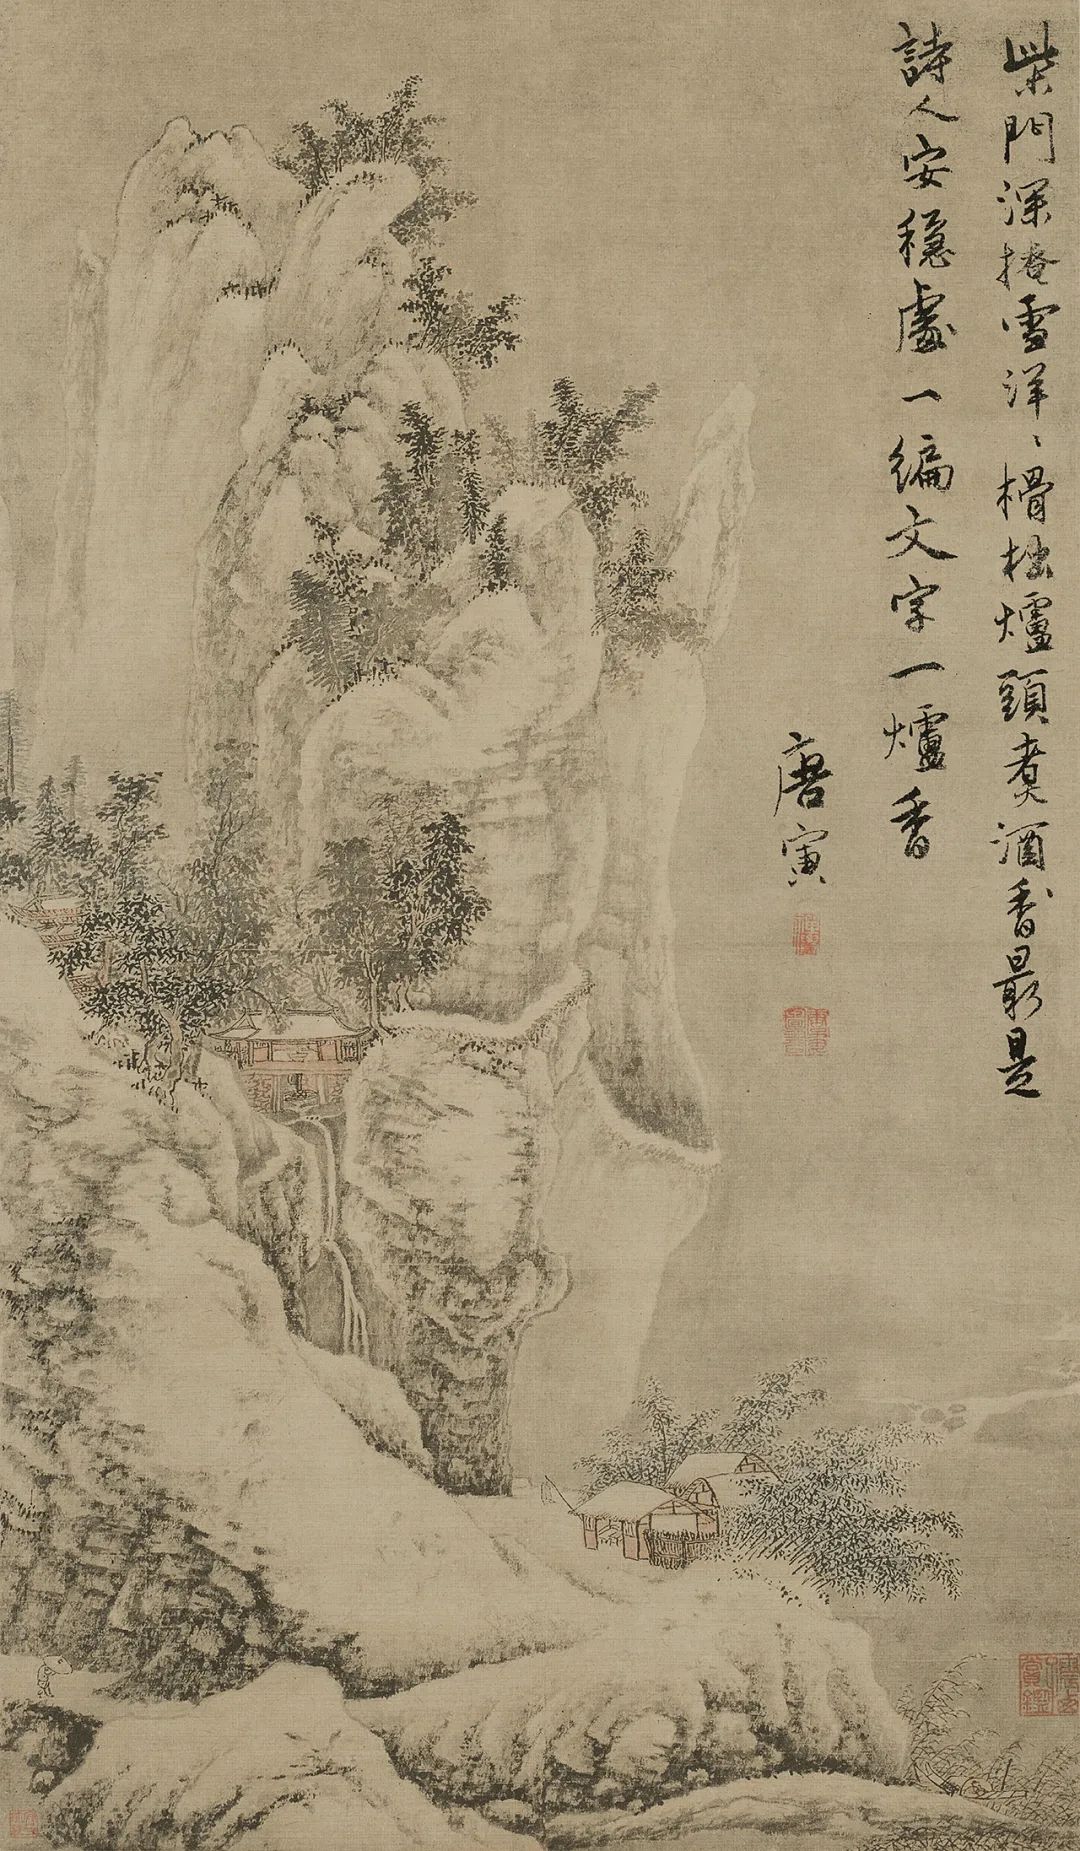 柴門深掩雪洋〻榾柮爐頭煑酒香最是
詩人安穏處一編文字一爐香
唐寅